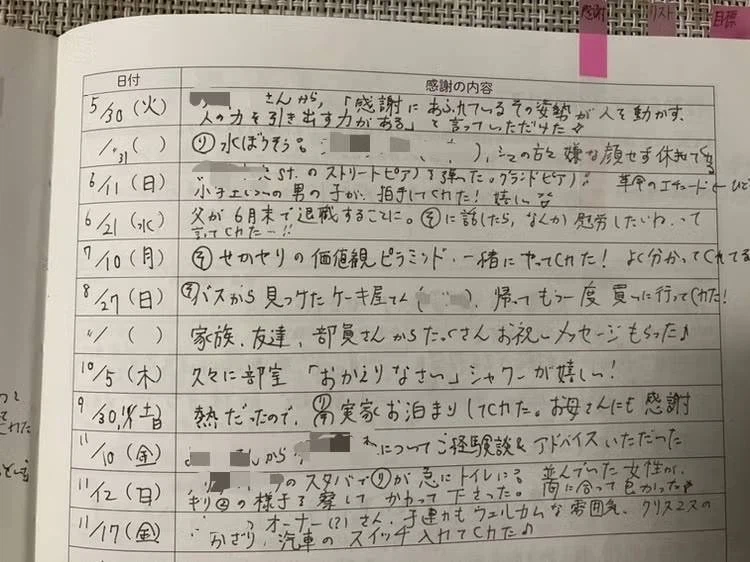 感謝
リスト
目標
日付 感謝の内容
5/30 (火) さんから,「感謝にあふれているその姿勢が人を動かす,
人の力を引き出す力がある」と言っていただけた
〃31 ( ) 水ぼうそう。 ), シフトの方々 嫌な顔せず休ませてくれる
6/11 (日) St.のストリートピアノを弾いた。グランドピアノ! 革命のエチュード
小学生いつの男の子が、拍手してくれた! 嬉しい
6/21 (水) 父が6月末で退職することに。に話したら,なんか慰労したいね、って
言ってくれたー!!
7/10 (月) せかやりの価値観ピラミッド、一緒にやってくれた! よく分かってくれてる
8/27 (日) バスから見つけたケーキ屋さん ( ), 帰ってもう一度買いに行ってくれた!
〃 ( ) 家族、友達、部員さんからたくさんお祝いメッセージもらった♪
10/5 (木) 久々に部室「おかえりなさい」シャワーが嬉しい!
9/30, 土日 熱だったので、実家お泊まりしてくれた。お母さんにも感謝
11/10 (金) から についてご経験談&アドバイスいただいた
11/12 (日) のスタバでが急にトイレに! 並んでいた女性が,
の様子を察してかわって下さった。間に合って良かった
11/17 (金) オーナー(?)さん、子連れもウェルカムな雰囲気、クリスマスの
かざり、汽車のスイッチ入れてくれた♪